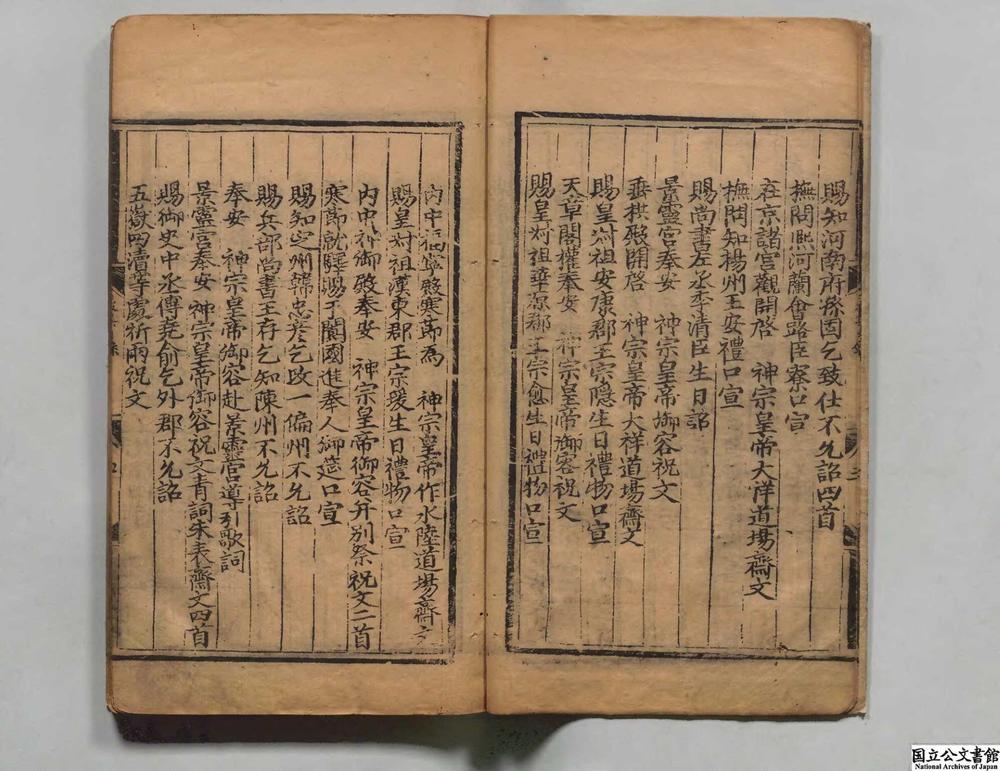 賜知河南府孫固乞致仕不允詔四首
撫問熙河蘭會路臣寮口宣
在京諸宮觀開啓　神宗皇帝大祥道場齋文
撫問知揚州王安禮口宣
賜尚書左丞李清臣生日詔
景靈宮奉安　神宗皇帝御容祝文
垂拱殿開啓　神宗皇帝大祥道場齋文
賜皇叔祖安康郡王宗隱生日禮物口宣
天章閣權奉安　神宗皇帝御容祝文
賜皇叔祖華原郡王宗愈生日禮物口宣
內中福寧殿寒節為　神宗皇帝作水陸道場齋文
賜皇叔祖漢東郡王宗瑗生日禮物口宣
內中神御殿奉安　神宗皇帝御容并別祭祝文二首
寒節就驛賜于闐國進奉人御筵口宣
賜知定州韓忠彥乞改一偏州不允詔
賜兵部尚書王存乞知陳州不允詔
奉安　神宗皇帝御容赴景靈宮導引歌詞
景靈宮奉安　神宗皇帝御容祝文青詞朱表齋文四首
賜御史中丞傅堯俞乞外郡不允詔
五嶽四瀆等處祈雨祝文
国立公文書館
National Archives of Japan